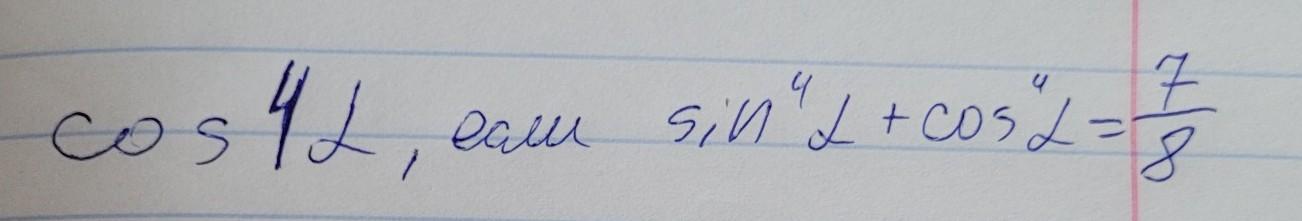 cos 4α, если sin⁴α + cos⁴α = 7/8